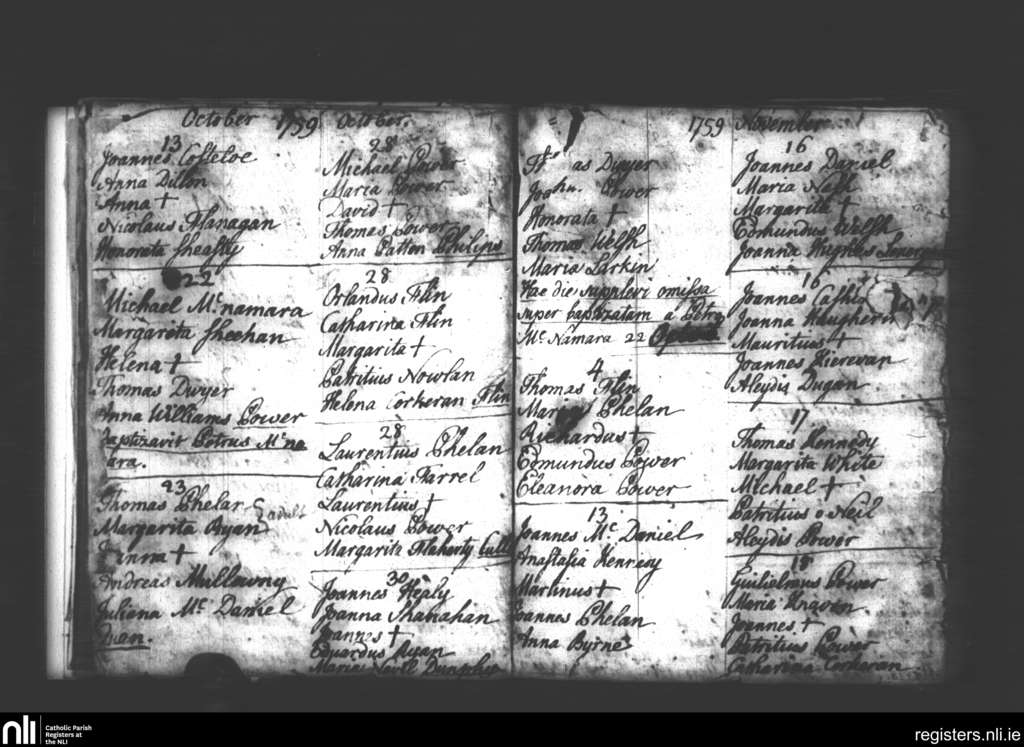 October 1759
13
Joannes Costeloe
Anna Dillon
Anna †
Nicolaus Flanagan
Honorata Sheathy
22
Michael Mc namara
Margareta Sheehan
Helena †
Thomas Dwyer
Anna Williams Power
baptizavit Petrus Mc na
ara.
23
Thomas Phelan
Margarita Ryan
†
Andreas Mullowny
Juliana Mc Daniel
October.
28
Michael Power
Maria Power
David †
Thomas Power
Anna Patton Phelips
28
Orlandus Flin
Catharina Flin
Margarita †
Patritius Nowlan
Helena Corkeran Flin
28
Laurentius Phelan
Catharina Farrel
Laurentius †
Nicolaus Power
Margarita Flaherty
30
Joannes Healy
Joanna Shanahan
Joannes †
Eduardus Ryan
Maria
1759
as Dwyer
Power
Honorata †
Thomas Welsh
Maria Larkin
Hac die supplevi omissa
super baptizatam a Petro
Mc Namara 22
4
Thomas Flin
Maria Phelan
Richardus †
Edmundus Power
Eleanora Power
13
Joannes Mc Daniel
Anastasia Henresy
Martinus †
Joannes Phelan
Anna Byrne
November
16
Joannes Daniel
Maria Nash
Margarita †
Edmundus Welsh
Joanna Hughes
16
Joannes
Joanna
Mauritius †
Joannes Kierevan
Aleydis Dugan
17
Thomas Kennedy
Margarita White
Michael †
Patritius o Neil
Aleydis Power
18
Guilielmus Power
Maria
Joannes †
Patritius Power
Catharina Corkeran
nli
Catholic Parish
Registers at
the NLI
registers.nli.ie